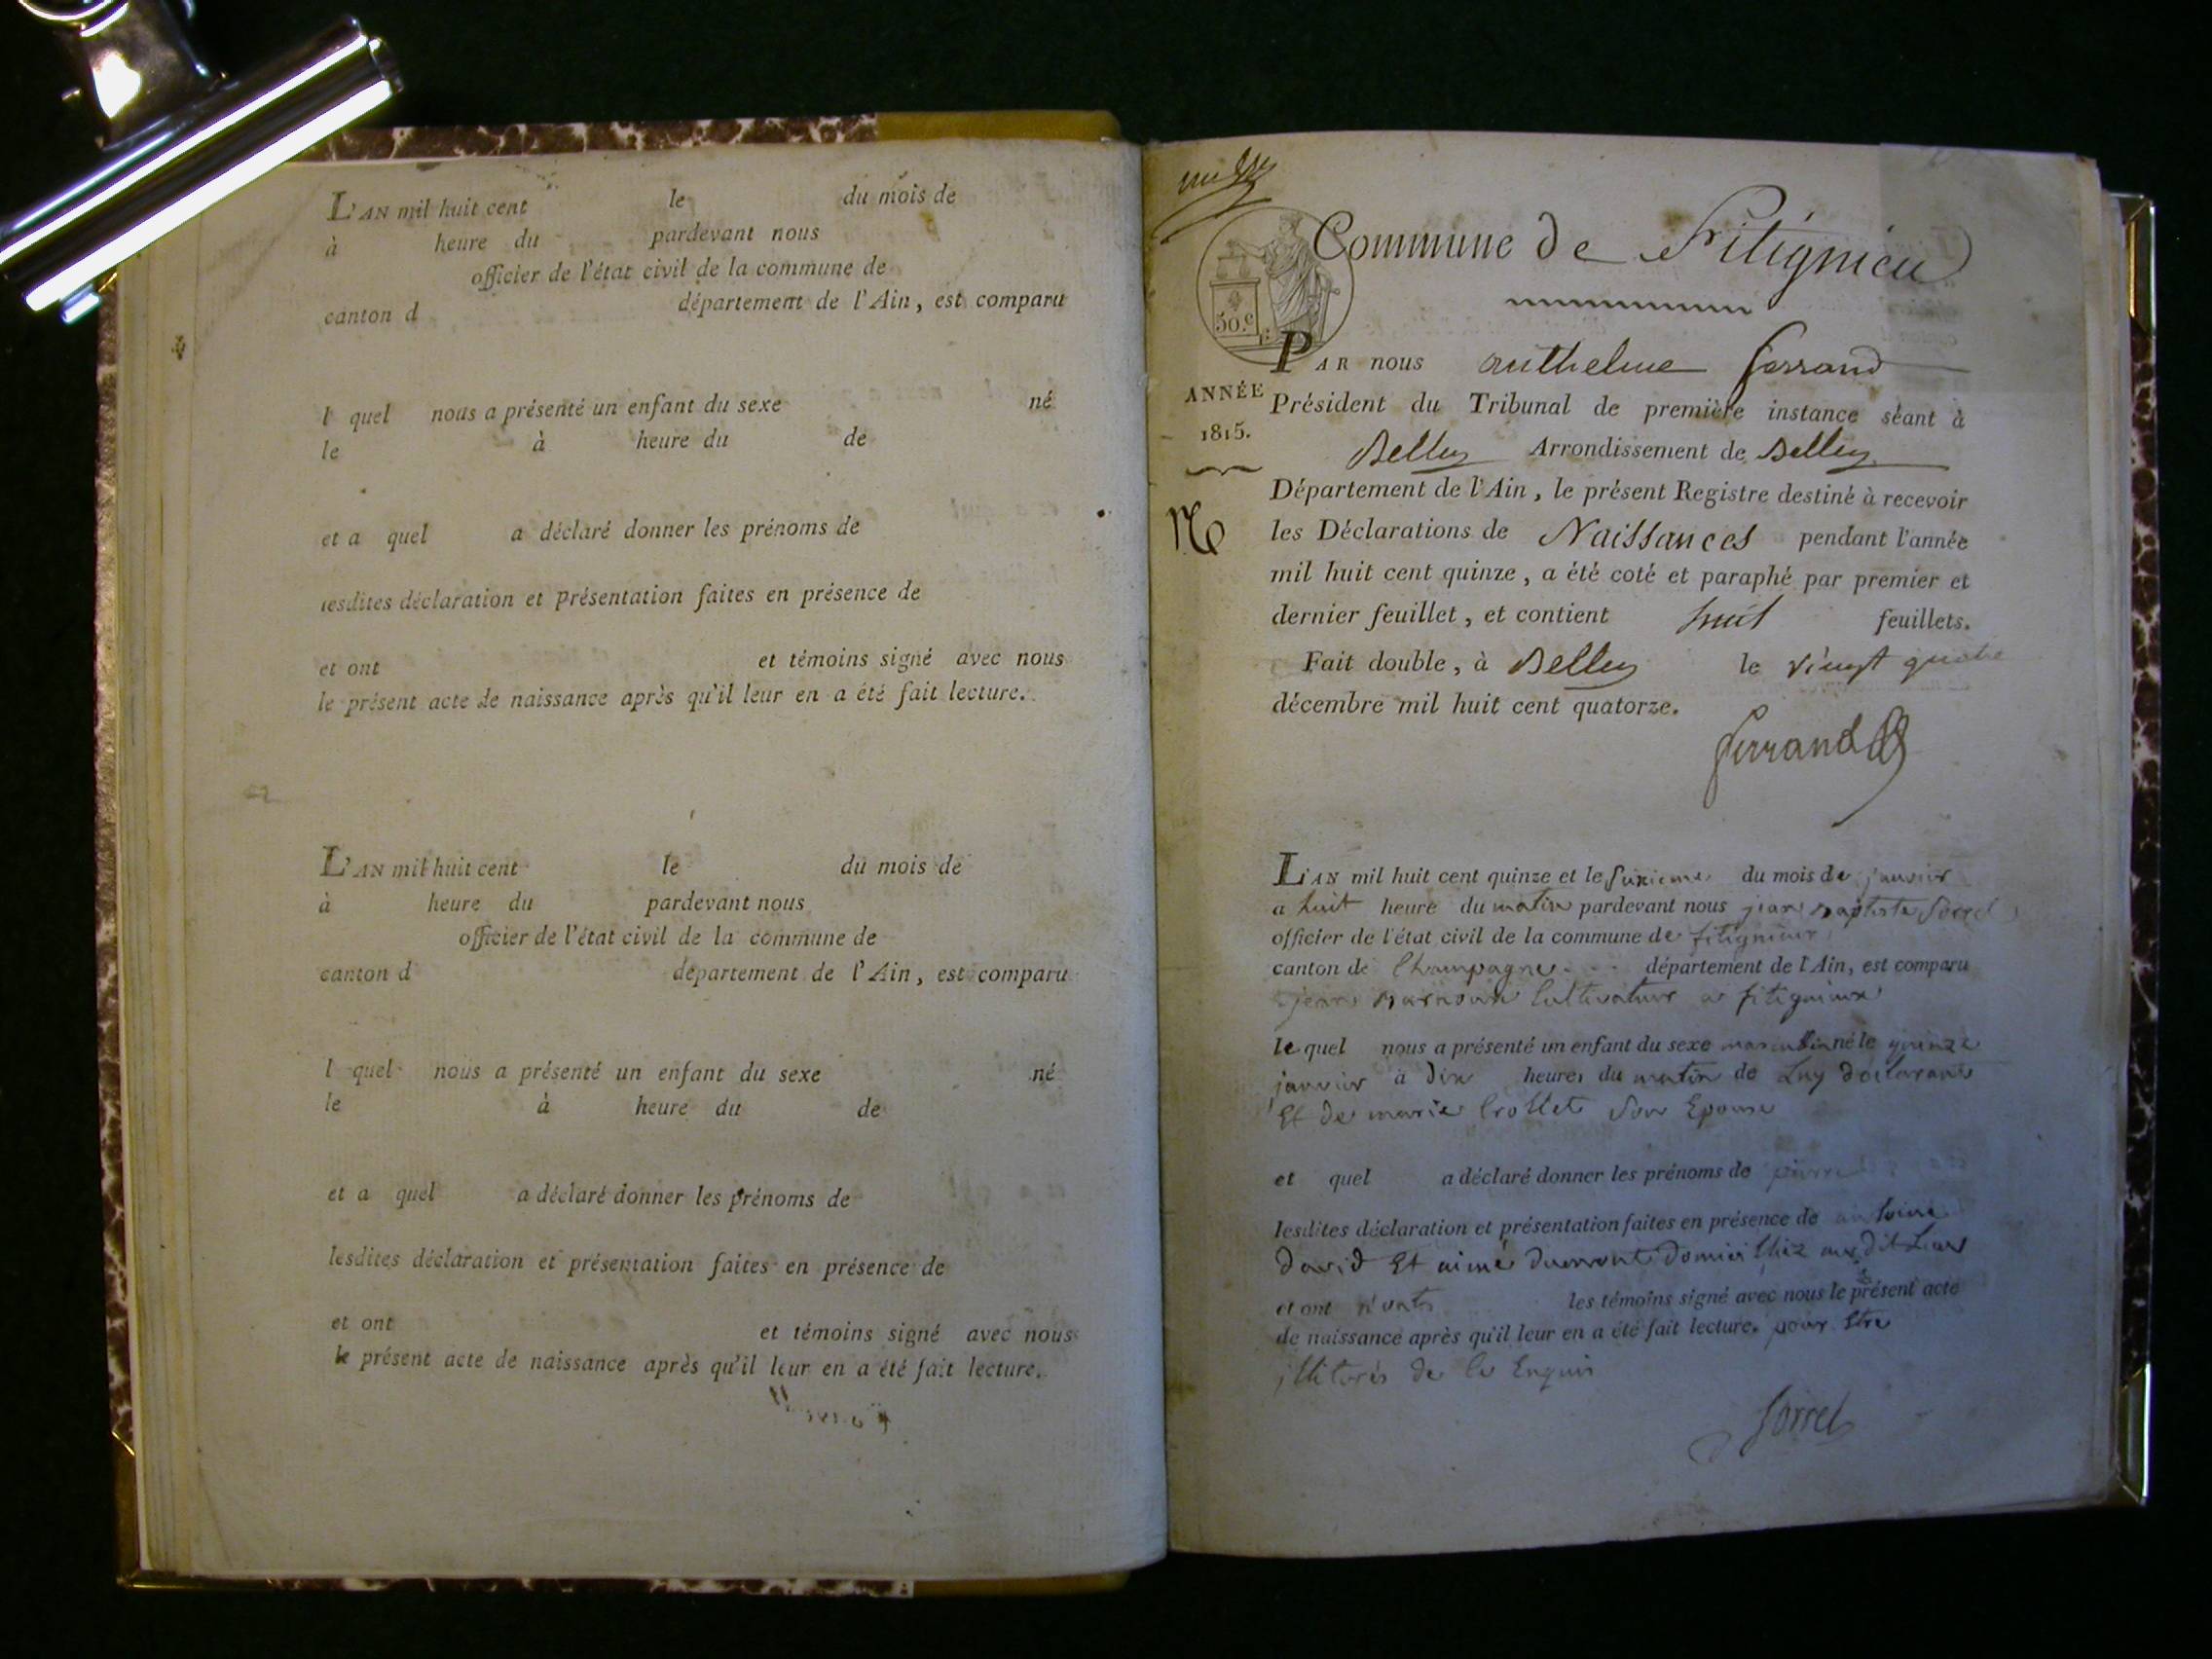 L'AN mil huit cent le du mois de
à heure du pardevant nous
officier de l'état civil de la commune de
canton d département de l'Ain, est comparu
l quel nous a présenté un enfant du sexe né
le à heure du de
et a quel a déclaré donner les prénoms de
lesdites déclaration et présentation faites en présence de
et ont et témoins signé avec nous
le présent acte de naissance après qu'il leur en a été fait lecture.
L'AN mil huit cent le du mois de
à heure du pardevant nous
officier de l'état civil de la commune de
canton d département de l'Ain, est comparu
l quel nous a présenté un enfant du sexe né
le à heure du de
et a quel a déclaré donner les prénoms de
lesdites déclaration et présentation faites en présence de
et ont et témoins signé avec nous
le présent acte de naissance après qu'il leur en a été fait lecture.
Commune de Fitignieu
50.c
PAR nous anthelme ferrand
ANNÉE
1815.
Président du Tribunal de première instance séant à
Belley Arrondissement de Belley
Département de l'Ain, le présent Registre destiné à recevoir
les Déclarations de Naissances pendant l'année
mil huit cent quinze, a été coté et paraphé par premier et
dernier feuillet, et contient huit feuillets.
Fait double, à Belley le vingt quatre
décembre mil huit cent quatorze.
ferrand
L'AN mil huit cent quinze et le du mois de janvier
a huit heure du matin pardevant nous jean Baptiste Sorrel
officier de l'état civil de la commune de fitignieux
canton de Champagne département de l'Ain, est comparu
jean Cultivateur a fitignieux
lequel nous a présenté un enfant du sexe masculin né le quinze
janvier à dix heures du matin de Luy declarant
Et de marie Crollet Son Epouse
et quel a déclaré donner les prénoms de pierre
lesdites déclaration et présentation faites en présence de antoine
david Et aimé dumont domicilliez au dit Lieu
et ont les témoins signé avec nous le présent acte
de naissance après qu'il leur en a été fait lecture. pour Etre
illitorés de ce Enquis
Sorrel